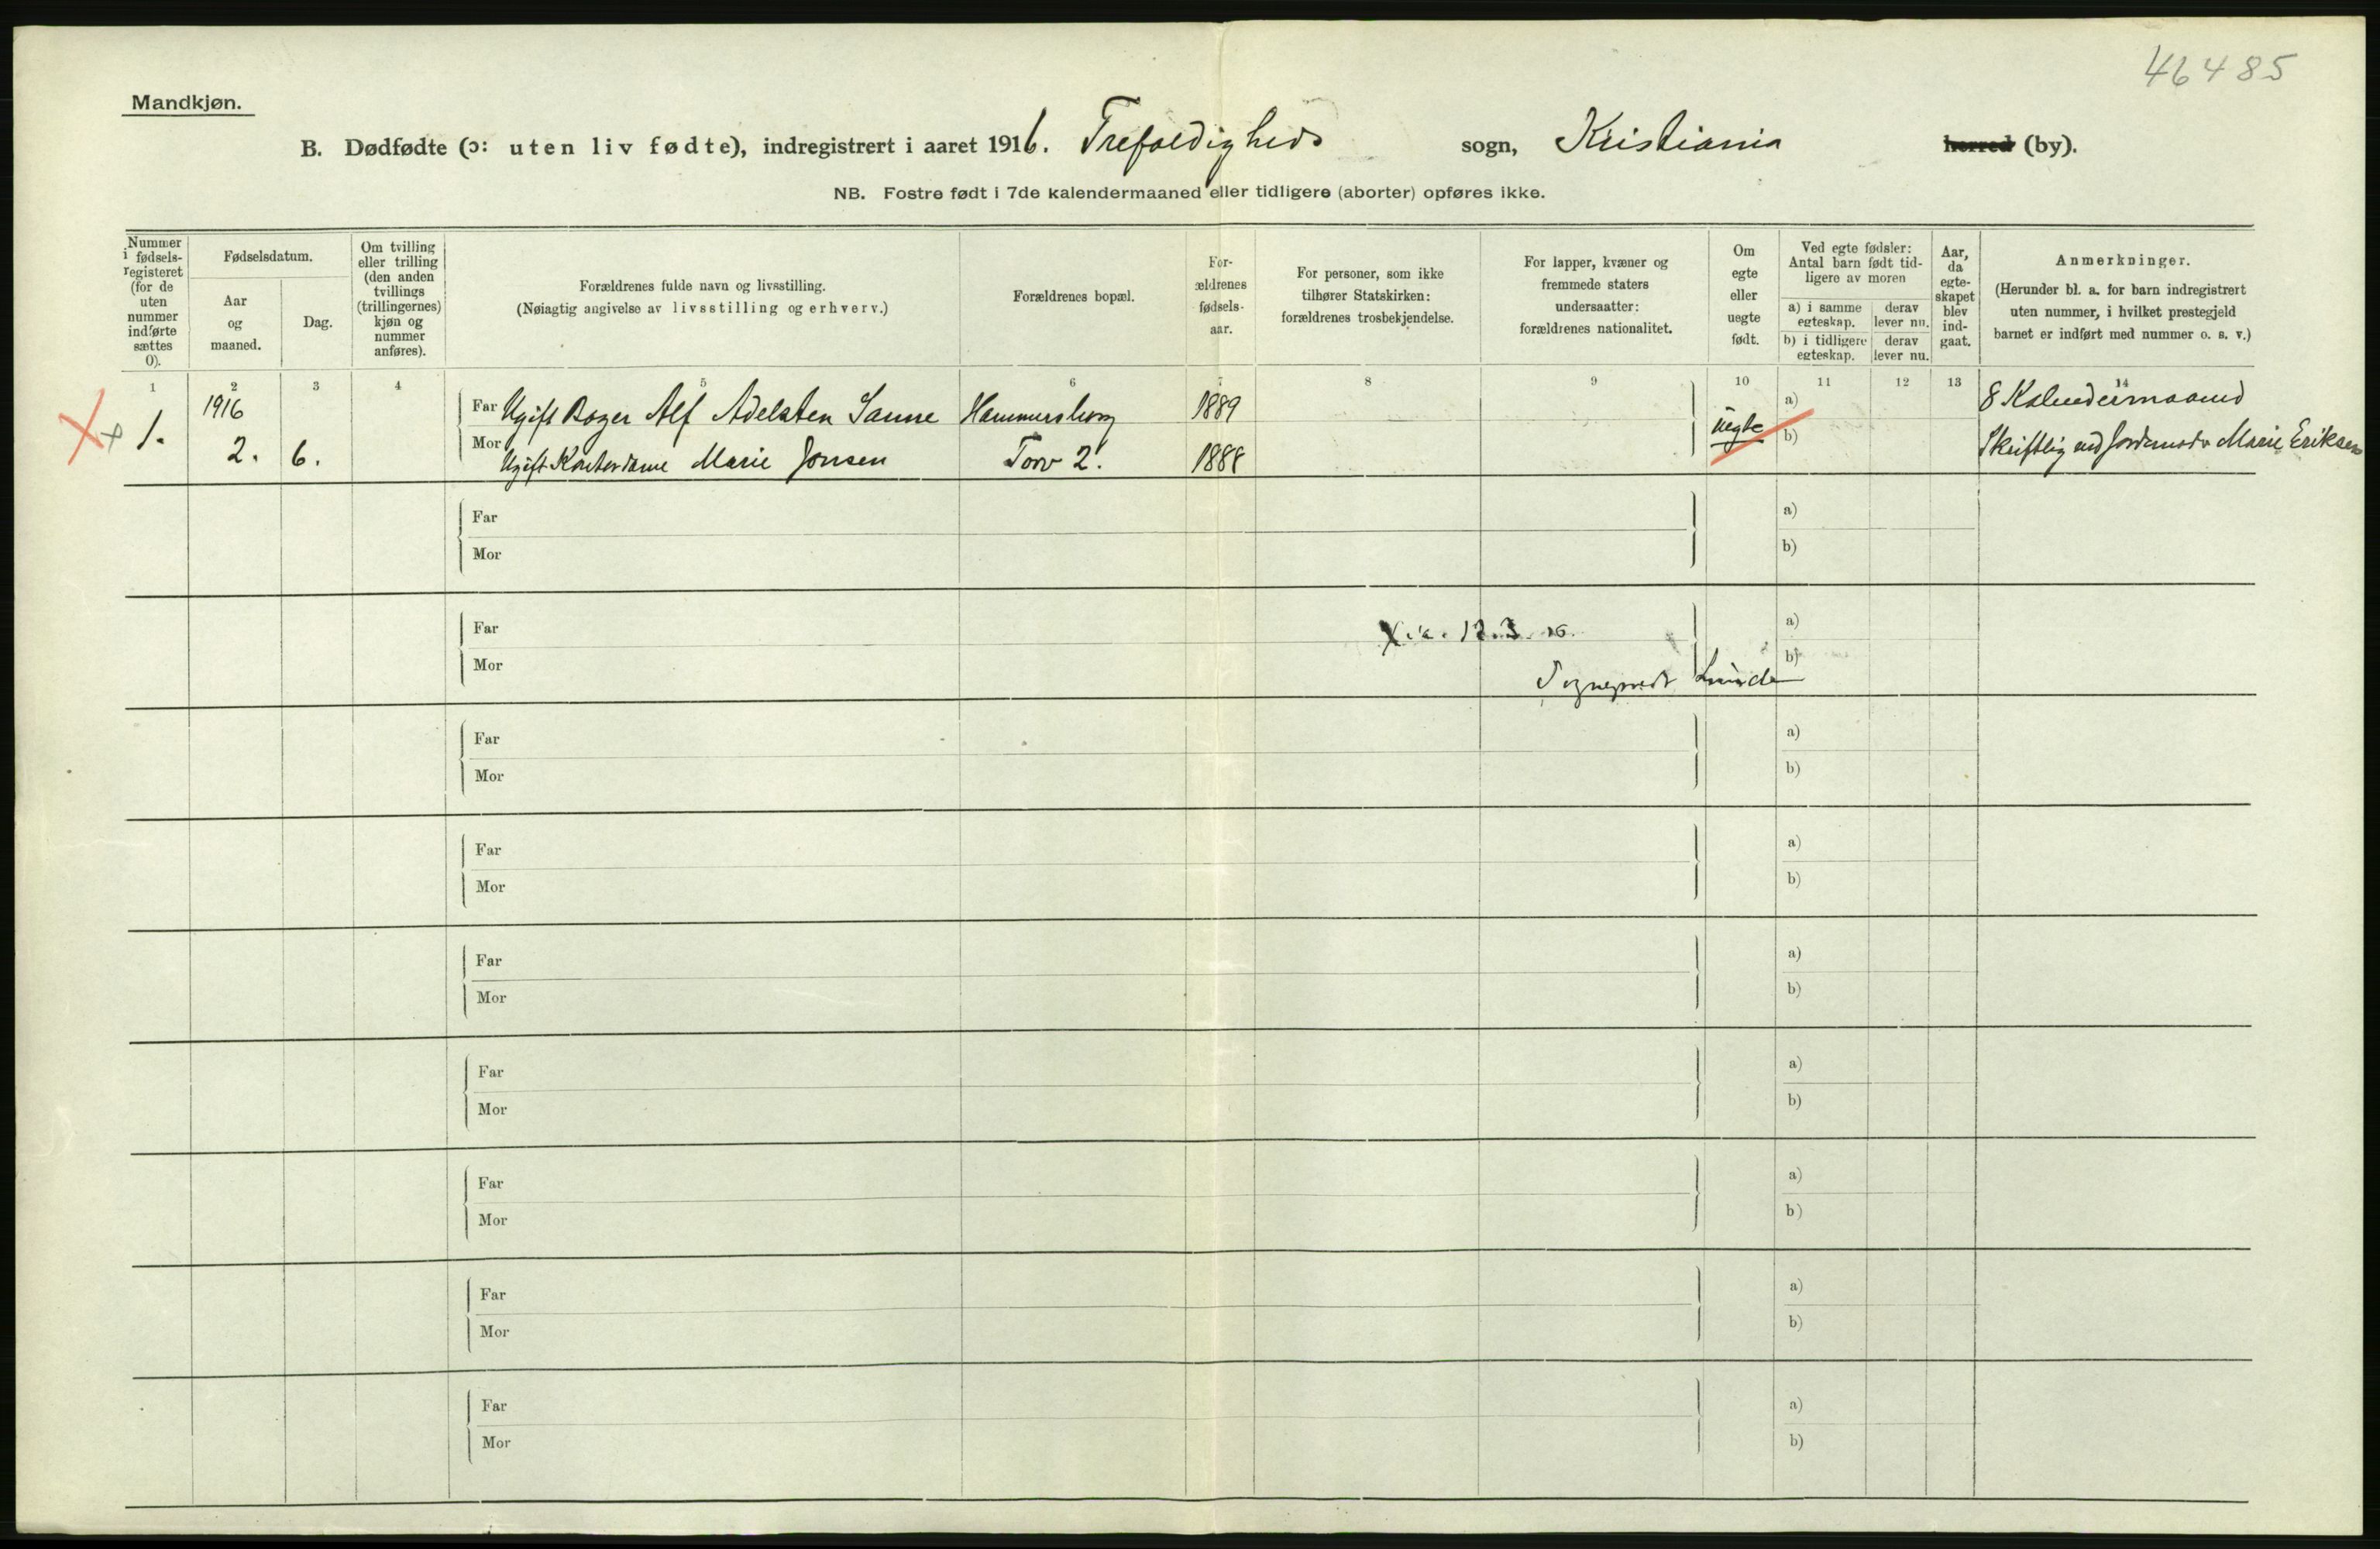 46485
Mandkjøn.
B. Dødfødte (ɔ: uten liv fødte), indregistrert i aaret 1916. Trefoldigheds sogn, Kristiania herred (by).
NB. Fostre født i 7de kalendermaaned eller tidligere (aborter) opføres ikke.
Nummer i fødselsregisteret (for de uten nummer indførte sættes 0).
Fødselsdatum.
Aar og maaned.
Dag.
Om tvilling eller trilling (den anden tvillings (trillingernes) kjøn og nummer anføres).
Forældrenes fulde navn og livsstilling.
(Nøiagtig angivelse av livsstilling og erhverv.)
Forældrenes bopæl.
Forældrenes fødselsaar.
For personer, som ikke tilhører Statskirken: forældrenes trosbekjendelse.
For lapper, kvæner og fremmede staters undersaatter: forældrenes nationalitet.
Om egte eller uegte født.
Ved egte fødsler: Antal barn født tidligere av moren
a) i samme egteskap. derav lever nu.
b) i tidligere egteskap. derav lever nu.
Aar, da egteskapet blev indgaat.
Anmerkninger.
(Herunder bl. a. for barn indregistrert uten nummer, i hvilket prestegjeld barnet er indført med nummer o. s. v.)
1 2 3 4 5 6 7 8 9 10 11 12 13 14
1916 Far Ugift Bager Alf Adelsten Sanne Hammersborg 1889 a) 8 Kalendermaaned
1. 2. 6. Mor Ugift Kontordame Marie Jonsen Torv 2. 1888 uegte b) Skriftlig ved Jordemodr Marie Eriksen
Far a)
Mor b)
Far 17.3.16. a)
Mor b)
Sogneprest Lunde
Far a)
Mor b)
Far a)
Mor b)
Far a)
Mor b)
Far a)
Mor b)
Far a)
Mor b)
Far a)
Mor b)
Far a)
Mor b)